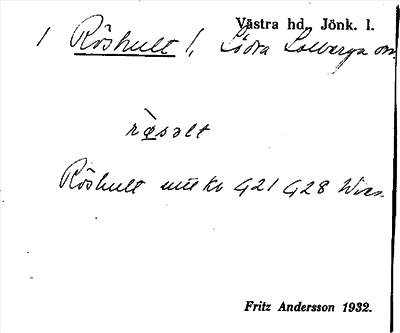 Västra hd., Jönk. l.
1 Röshult 1, Södra Solberga sn.
rösalt
Röshult mtl Kb G21 G28 Wies.
Fritz Andersson 1932.